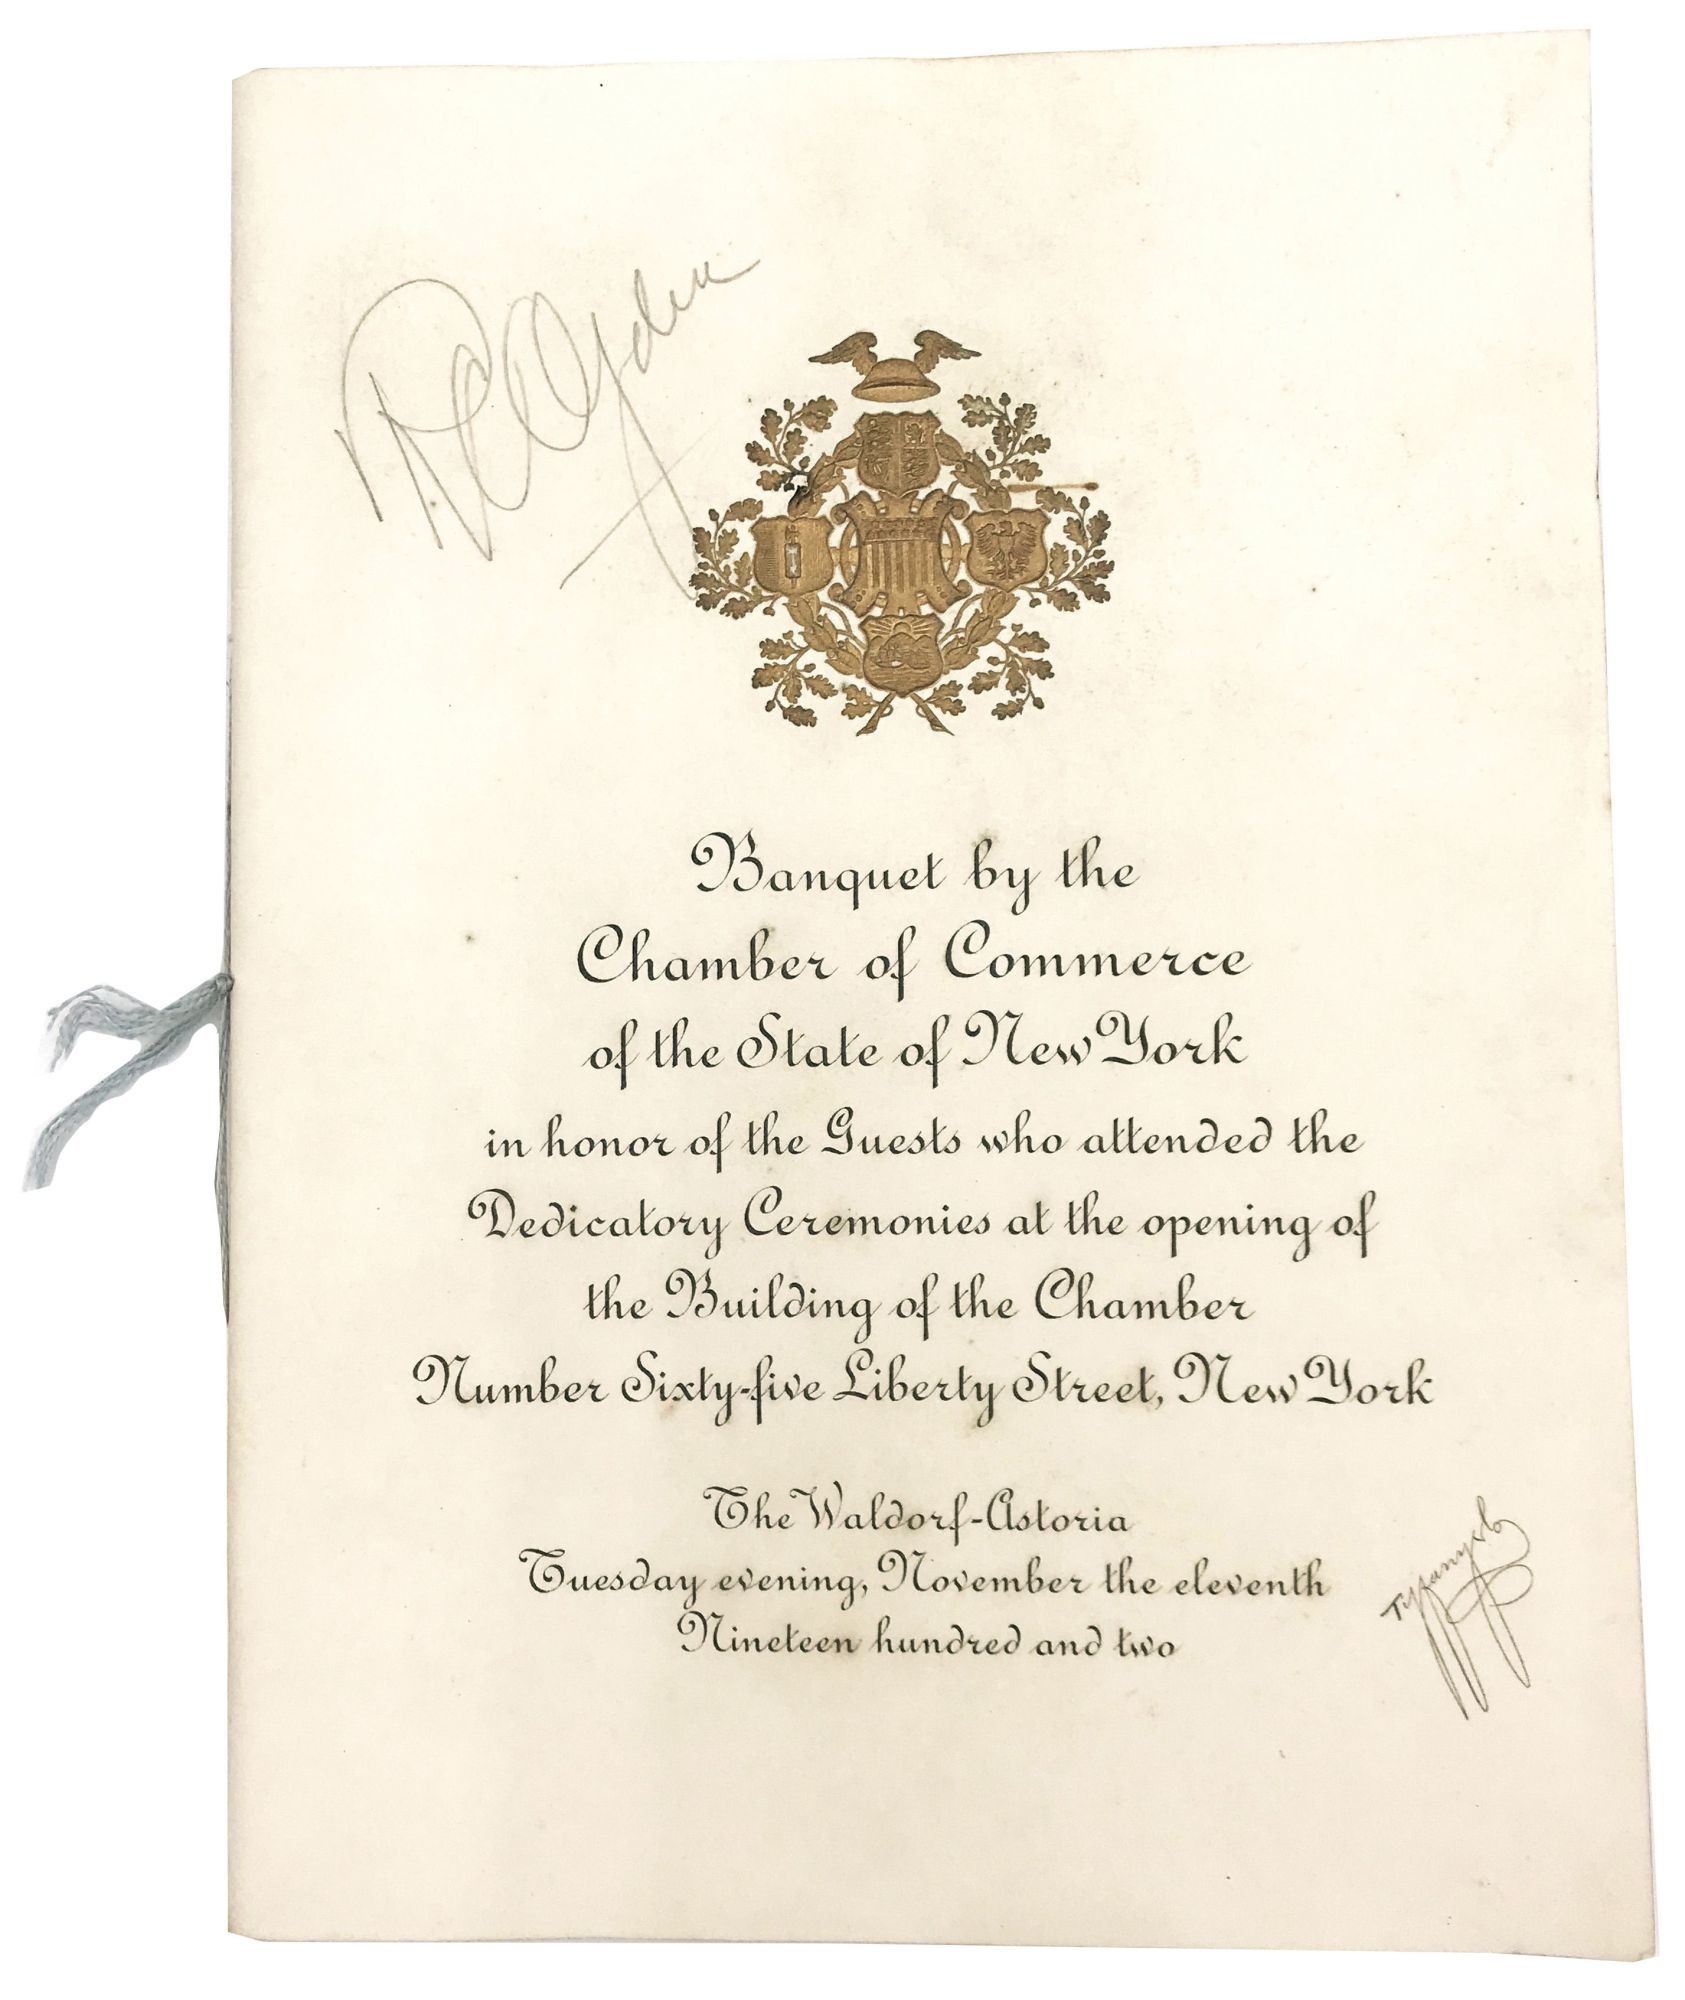 Ogden
Banquet by the
Chamber of Commerce
of the State of New York
in honor of the Guests who attended the
Dedicatory Ceremonies at the opening of
the Building of the Chamber
Number Sixty-five Liberty Street, New York
The Waldorf-Astoria
Tuesday evening, November the eleventh
Nineteen hundred and two